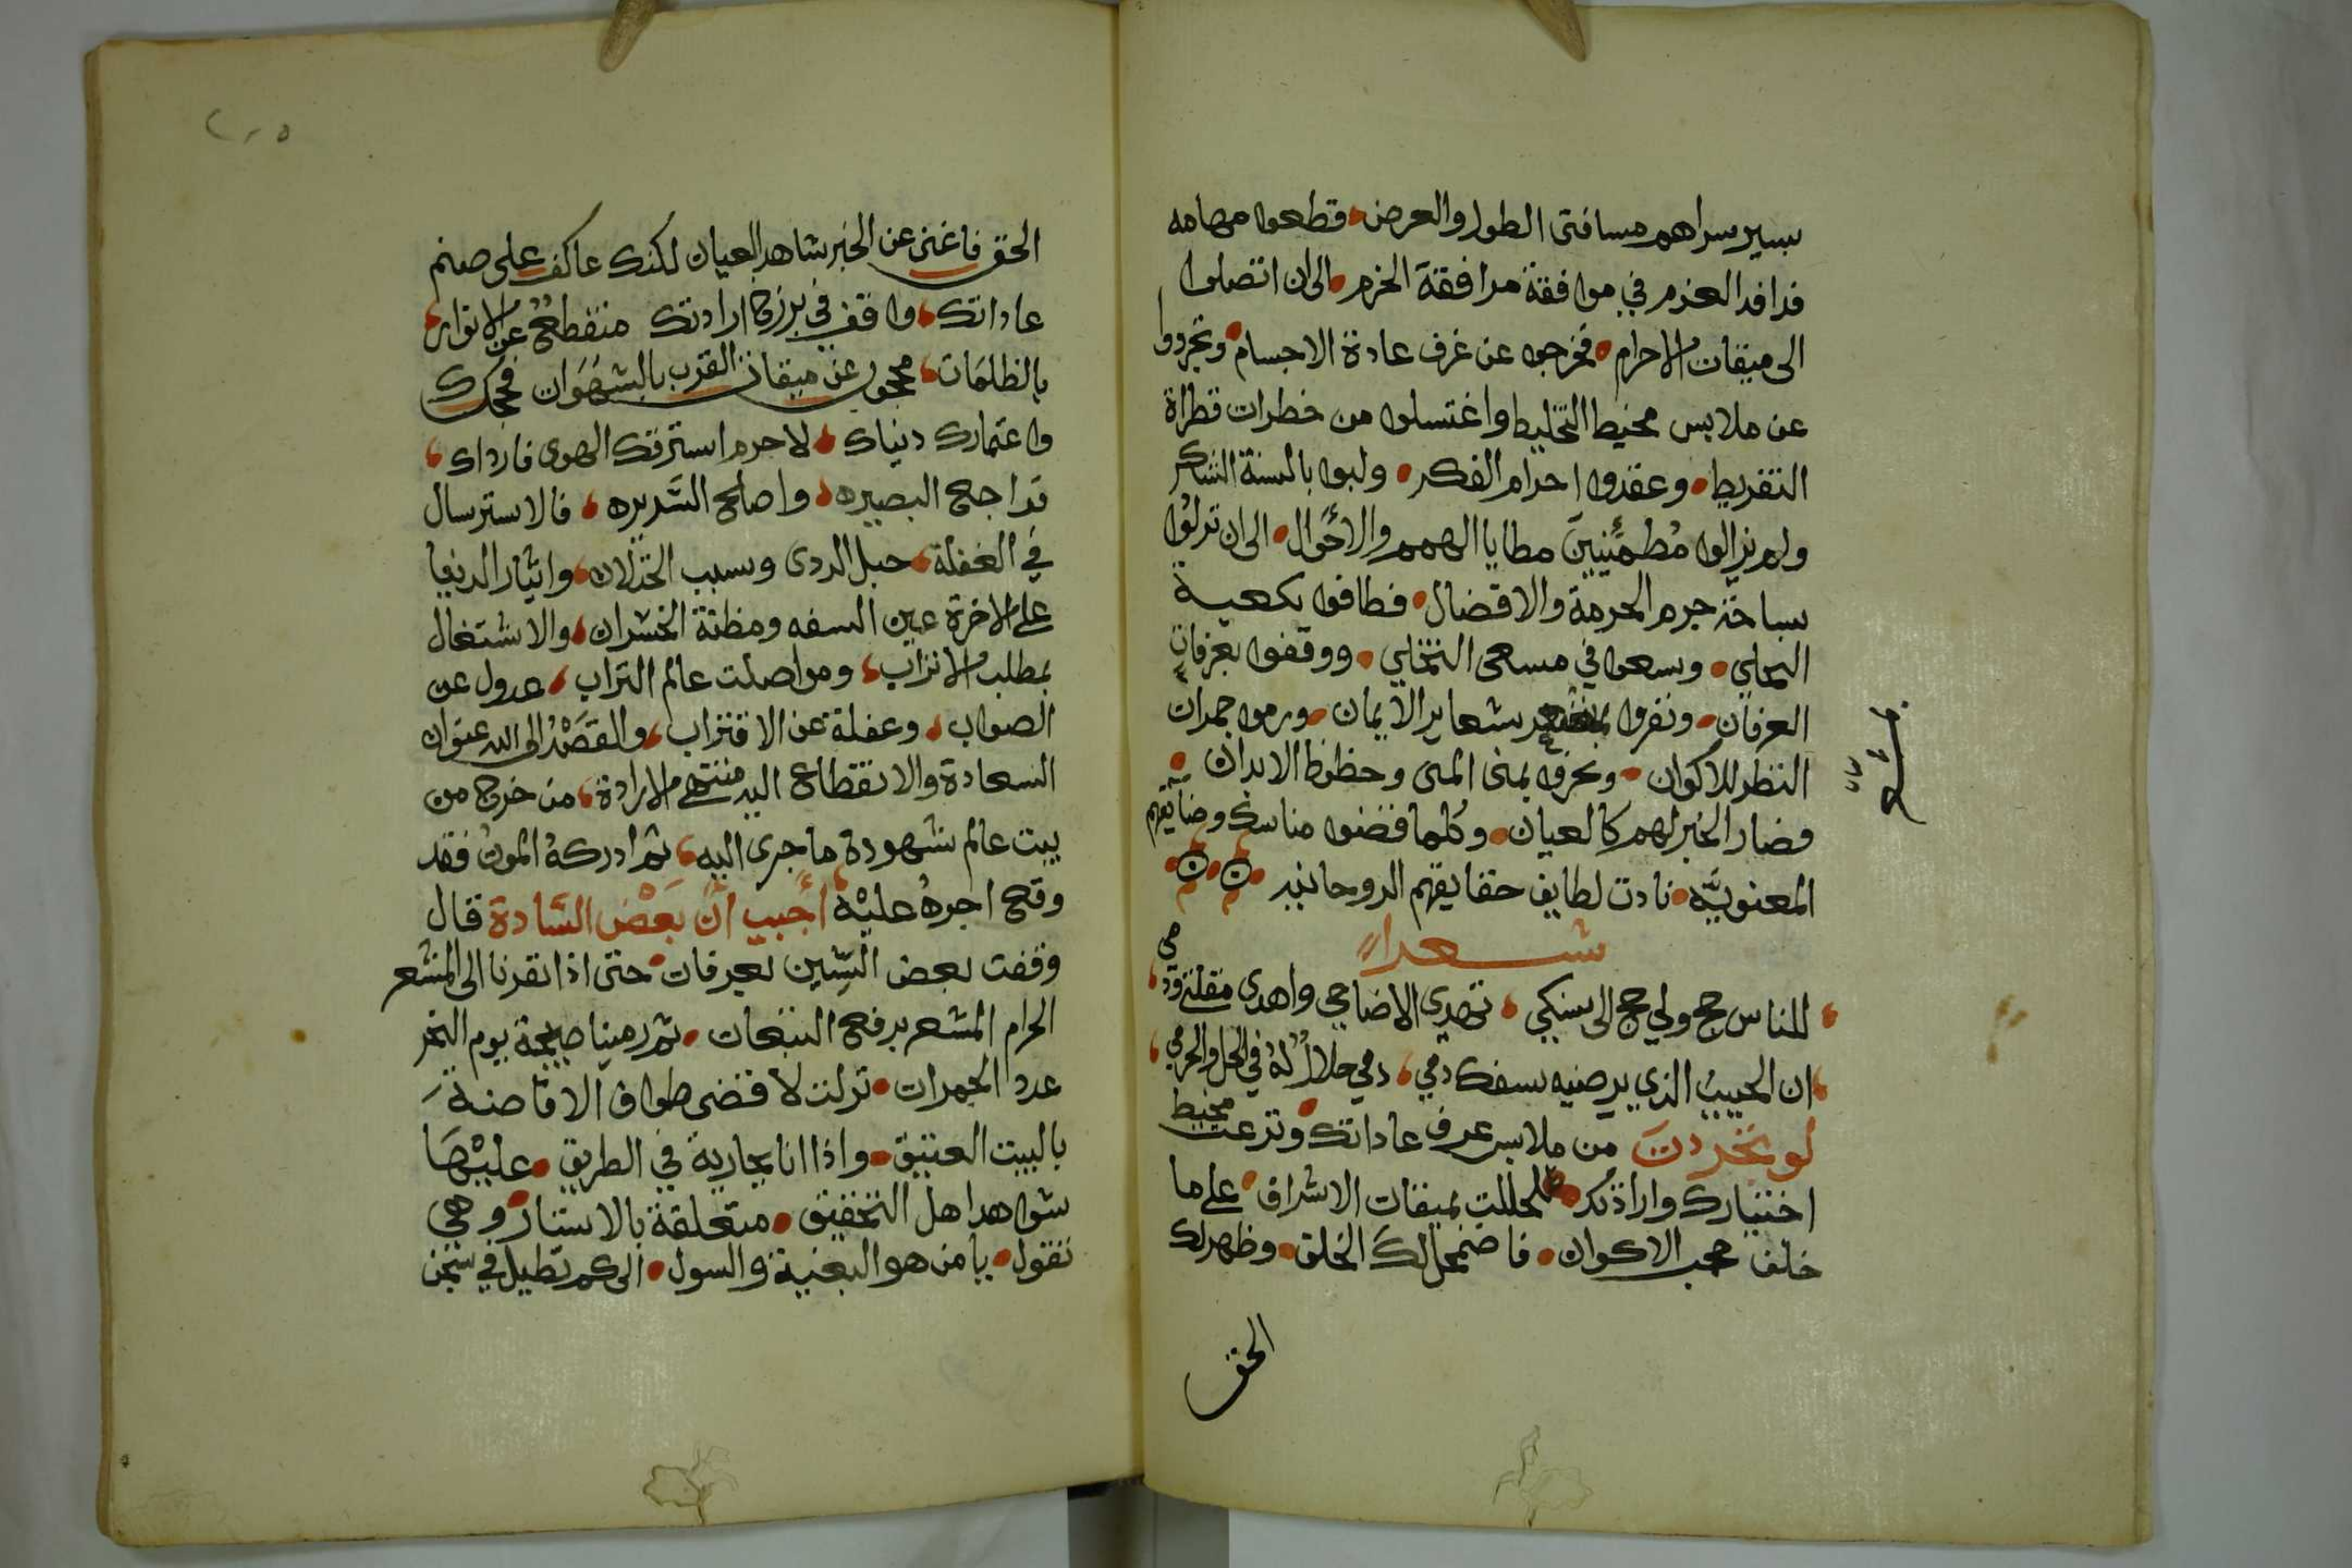 بسير سراهم مسافتى الطول والعرض وقطعوا مهامه
فدافد العزم في موافقة مرافقة الحزم الى ان اتصلوا
الى ميقات الاحرام فخرجوا عن غرف عادة الاجسام وتجردوا
عن ملابس مخيط التخليط واغتسلوا من خطرات قطراة
التفريط وعقدوا احرام الفكر ولبوا بالسنة الشكر
ولم يزالوا مُطمئنين مطايا الهمم والاحوال الى ان نزلوا
بساحة حرم الحرمة والافضال فطافوا بكعبة
التجلي وسعوا في مسعى التخلي ووقفوا بعرفات
العرفان ونفروا شعاير الايمان ورموا جمرات
النظر للاكوان ونحروا بمنى المنى وحظوظ الابدان
وصار الخبر لهم كالعيان وكلما قضوا مناسك
المعنويَّه نادت لطايف حقايقهم الروحانيه
شعرا
للناس حج ولي حج الى سكني تهدى الاضاحي واهدى
ان الحبيب الذي يرضيه سفك دمي دمي حلالٌ لهُ في الحل والحرمي
لو تجردت من ملابس عرف عاداتك ونزعت مخيط
اختيارك وارادتك لحللت بميقات الاشراق على ما
خلف حجب الاكوان فاضمحل لك الخلق وظهر لك
الحق
٢٠٥
الحق فاغنى عن الخبر شاهد العيان لكنك عاكف على صنم
عاداتك واقف في برزخ ارادتك منقطعٌ عن الانوار
بالظلمات محجوب عن ميقات القرب بالشهوات فحجك
واعتمارك دنياك لا جرم استرقك الهوى فارداك
فراجع البصيره واصلح السَّريره فالاسترسال
في الغفلة حبل الردى وسبب الخذلان وايثار الدنيا
على الاخرة عين السفه ومظنة الخسران والاشتغال
بمطلب الاتراب ومواصلت عالم التراب عدول عن
الصواب وغفلة عن الاقتراب والقصدُ الى الله عنوان
السعادة والانقطاع اليه منتهى الارادة من خرج من
بيت عالم شهودة ما جرى اليه ثم ادركهُ الموت فقد
وقع اجرهُ عليْه اُجيب ان بَعْض السَّادة قال
وقفت بعض السِّنين بعرفات حتى اذا نفرنا الى المشعر
الحرام المشعر برفع التبعات ثم رمينا صبيحة يوم النحر
عدد الجمرات نزلت لا قضى طواف الافاضة
بالبيت العتيق واذا انا بجارية في الطريق عليْهَا
شواهد اهل التحقيق متعلقة بالاستار وهي
تقول يا من هو البغية والسول الى كم تطيل في سجن